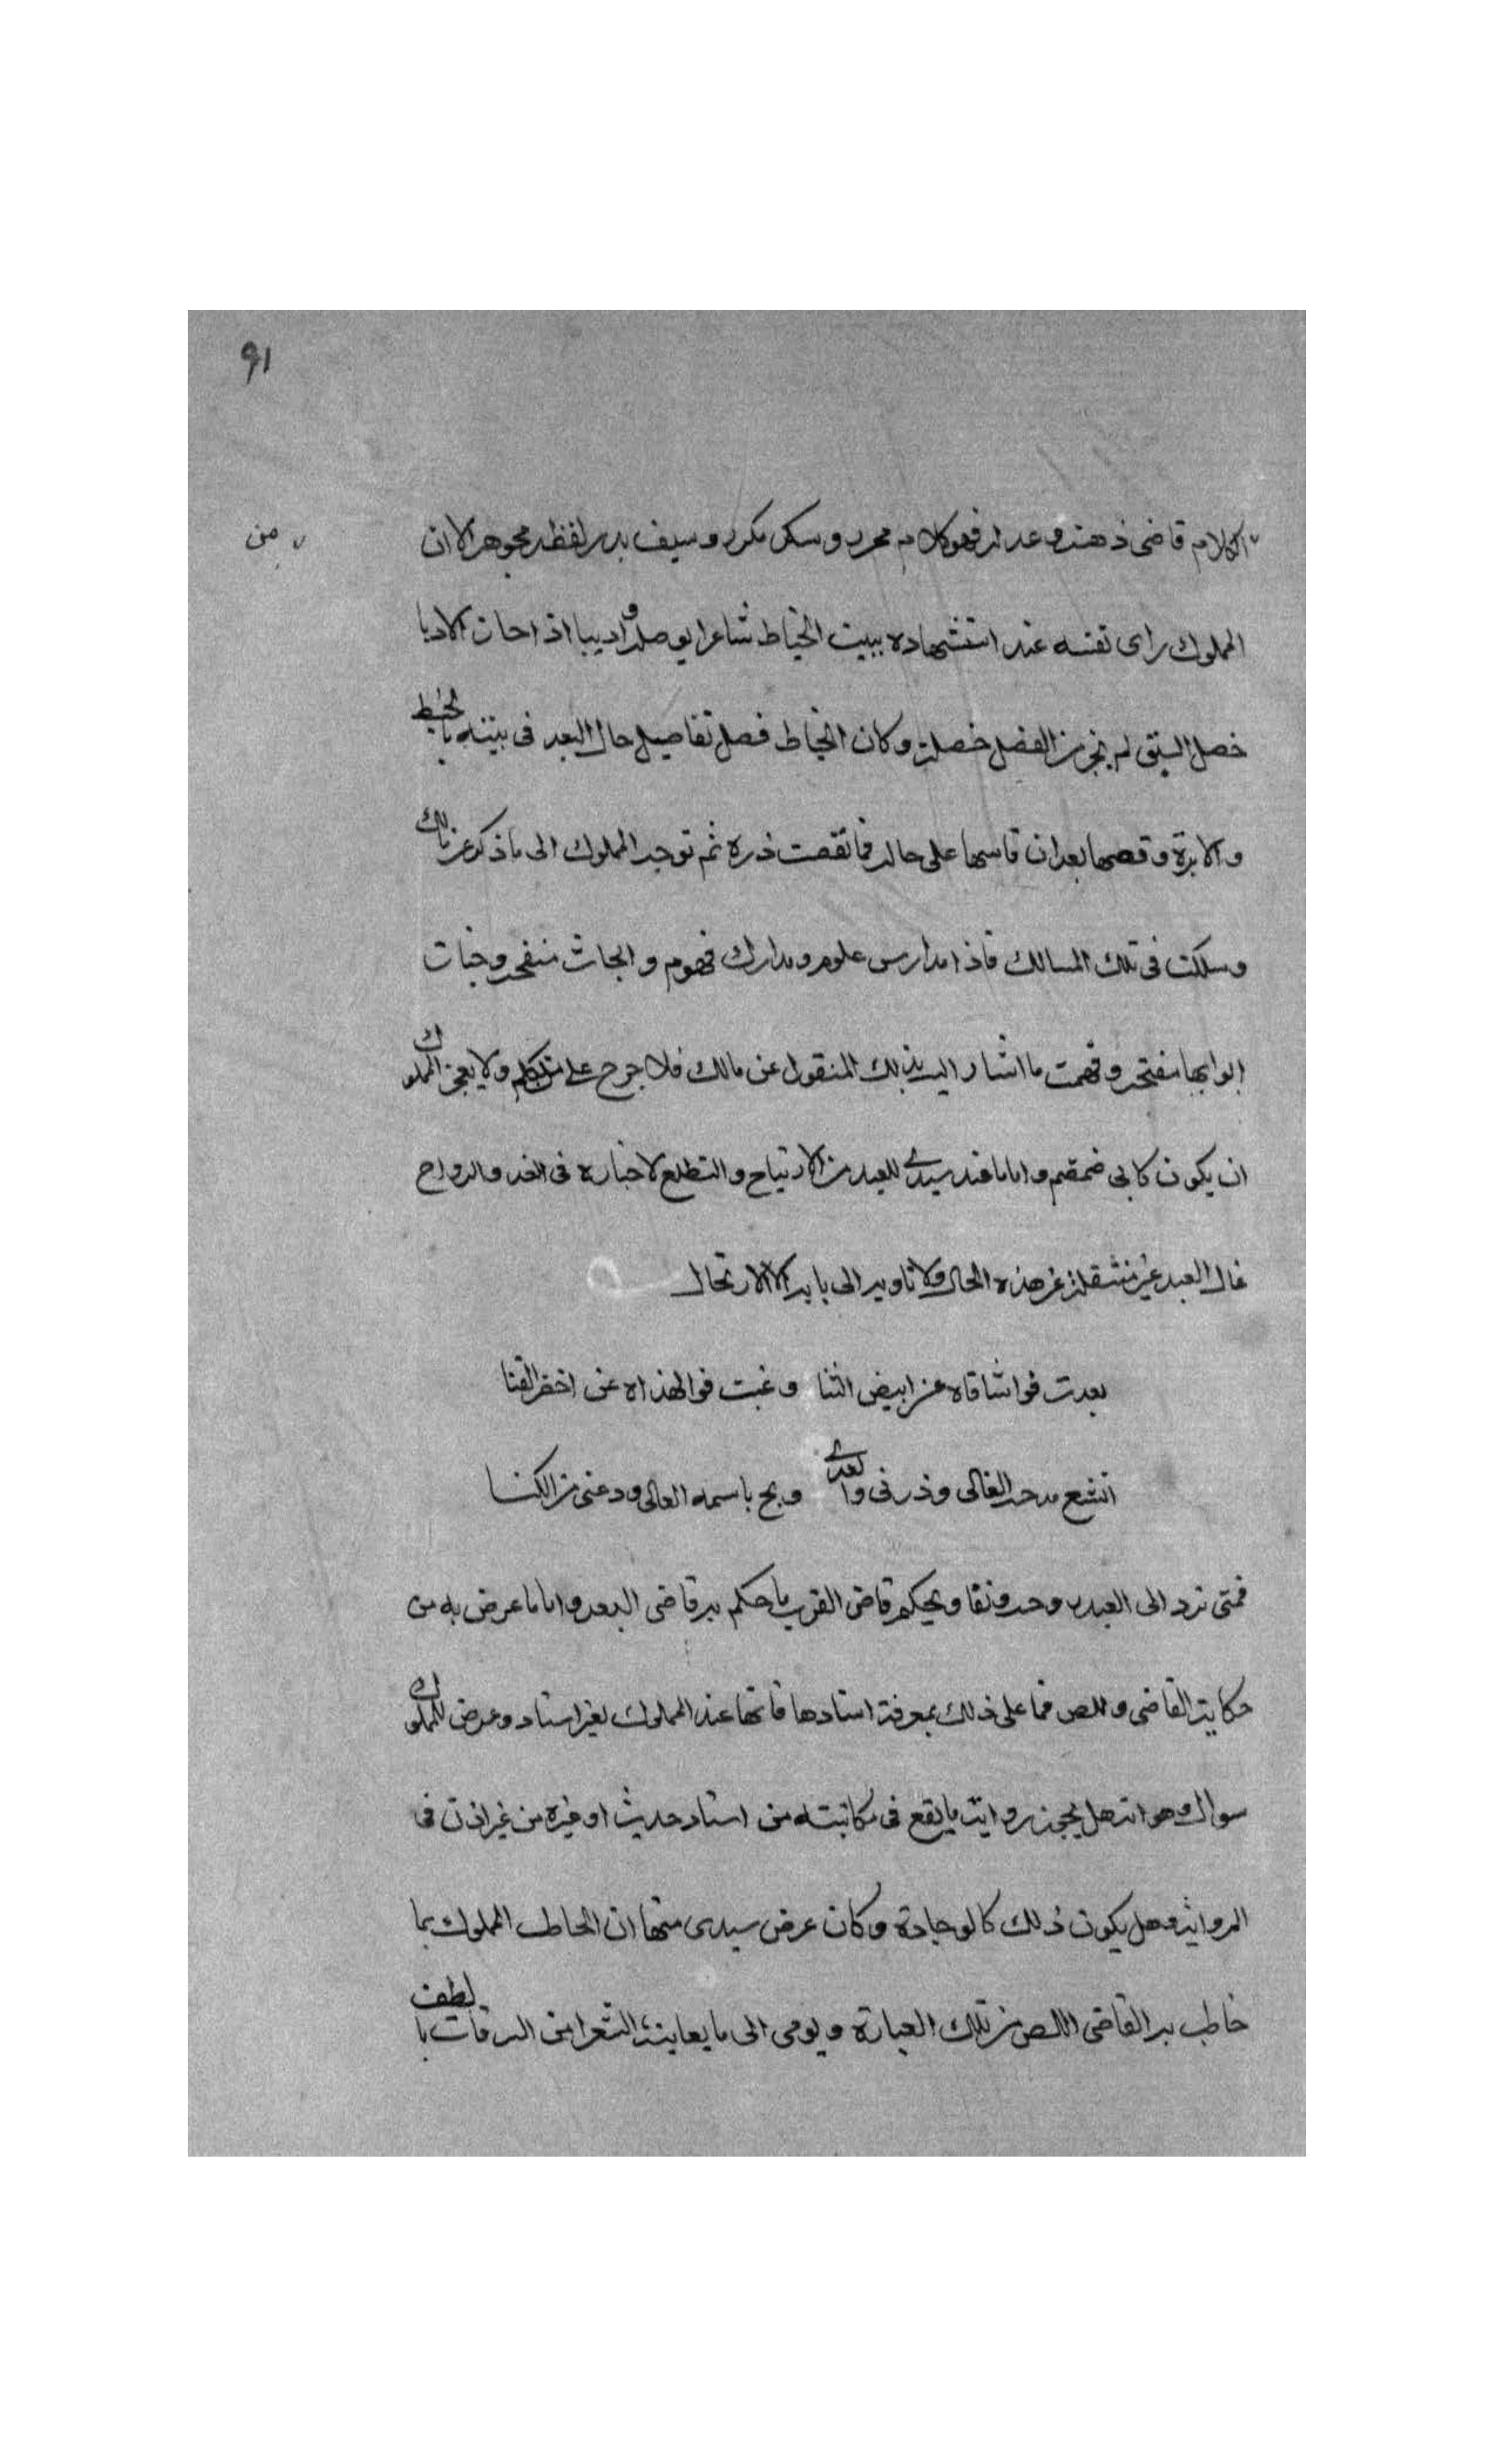 ٩١
من
الكلام قاضى ذهنه وعدله فهو كلام محرر وسكر مكرر وسيف بدر لفظه مجوهر الا ان
المملوك راى نفسه عند استشهاده ببيت الخياط شاعرا يوصله واديبا اذا حاز الادبا
خصل السبق لم يحز من الفضل خصلة وكان الخياط فصل تفاصيل حال البعد فى بيته بالخيط
والابرة وقصها بعد ان قاسها على حاله فما نقصت ذره ثم توجه المملوك الى ما ذكر عن مالك
وسلكت فى تلك المسالك فاذا مدارس علوم ومدارك فهوم وابحاث منقحه وجنات
ابوابها مفتحه وفهمت ما اشار اليه بذلك المنقول عن مالك فلا جرح على متكلم ولا يعجز المملوك
ان يكون كابى ضمضم واما ما عند سيدى للعبد من الارتياح والتطلع لاخباره فى الغد والرواح
فحال العبد غير منتقلة عن هذه الحال ولا تاويه الى بابه الا الارتحال
بعدت فواشاقاه عن ابيض الثنا وغبت فوالهفاه عن اخضر القنا
اشع مدحه الغالى وذرنى والعدى وبح باسمه العالى ودعنى من الكنا
فمتى ترد الى العبد روحه ونقا ويحكم قاضى القرب ما حكم به قاضى البعد واما ما عرض به من
حكاية القاضى واللص فما على ذلك بمعرفة اسنادها فانها عند المملوك بغير اسناد وعرض للمملوك
سوال وهو انه هل يجوز رواية ما يقع فى مكاتبته من اسناد حديث او غيره من غير اذن فى
الرواية وهل يكون ذلك كالوجادة وكان عرض سيدى منها ان الخاطب المملوك بما
خاطب به القاضى اللص من تلك العبارة ويومى الى ما يعاينه الشعرا من السرقات بالطف